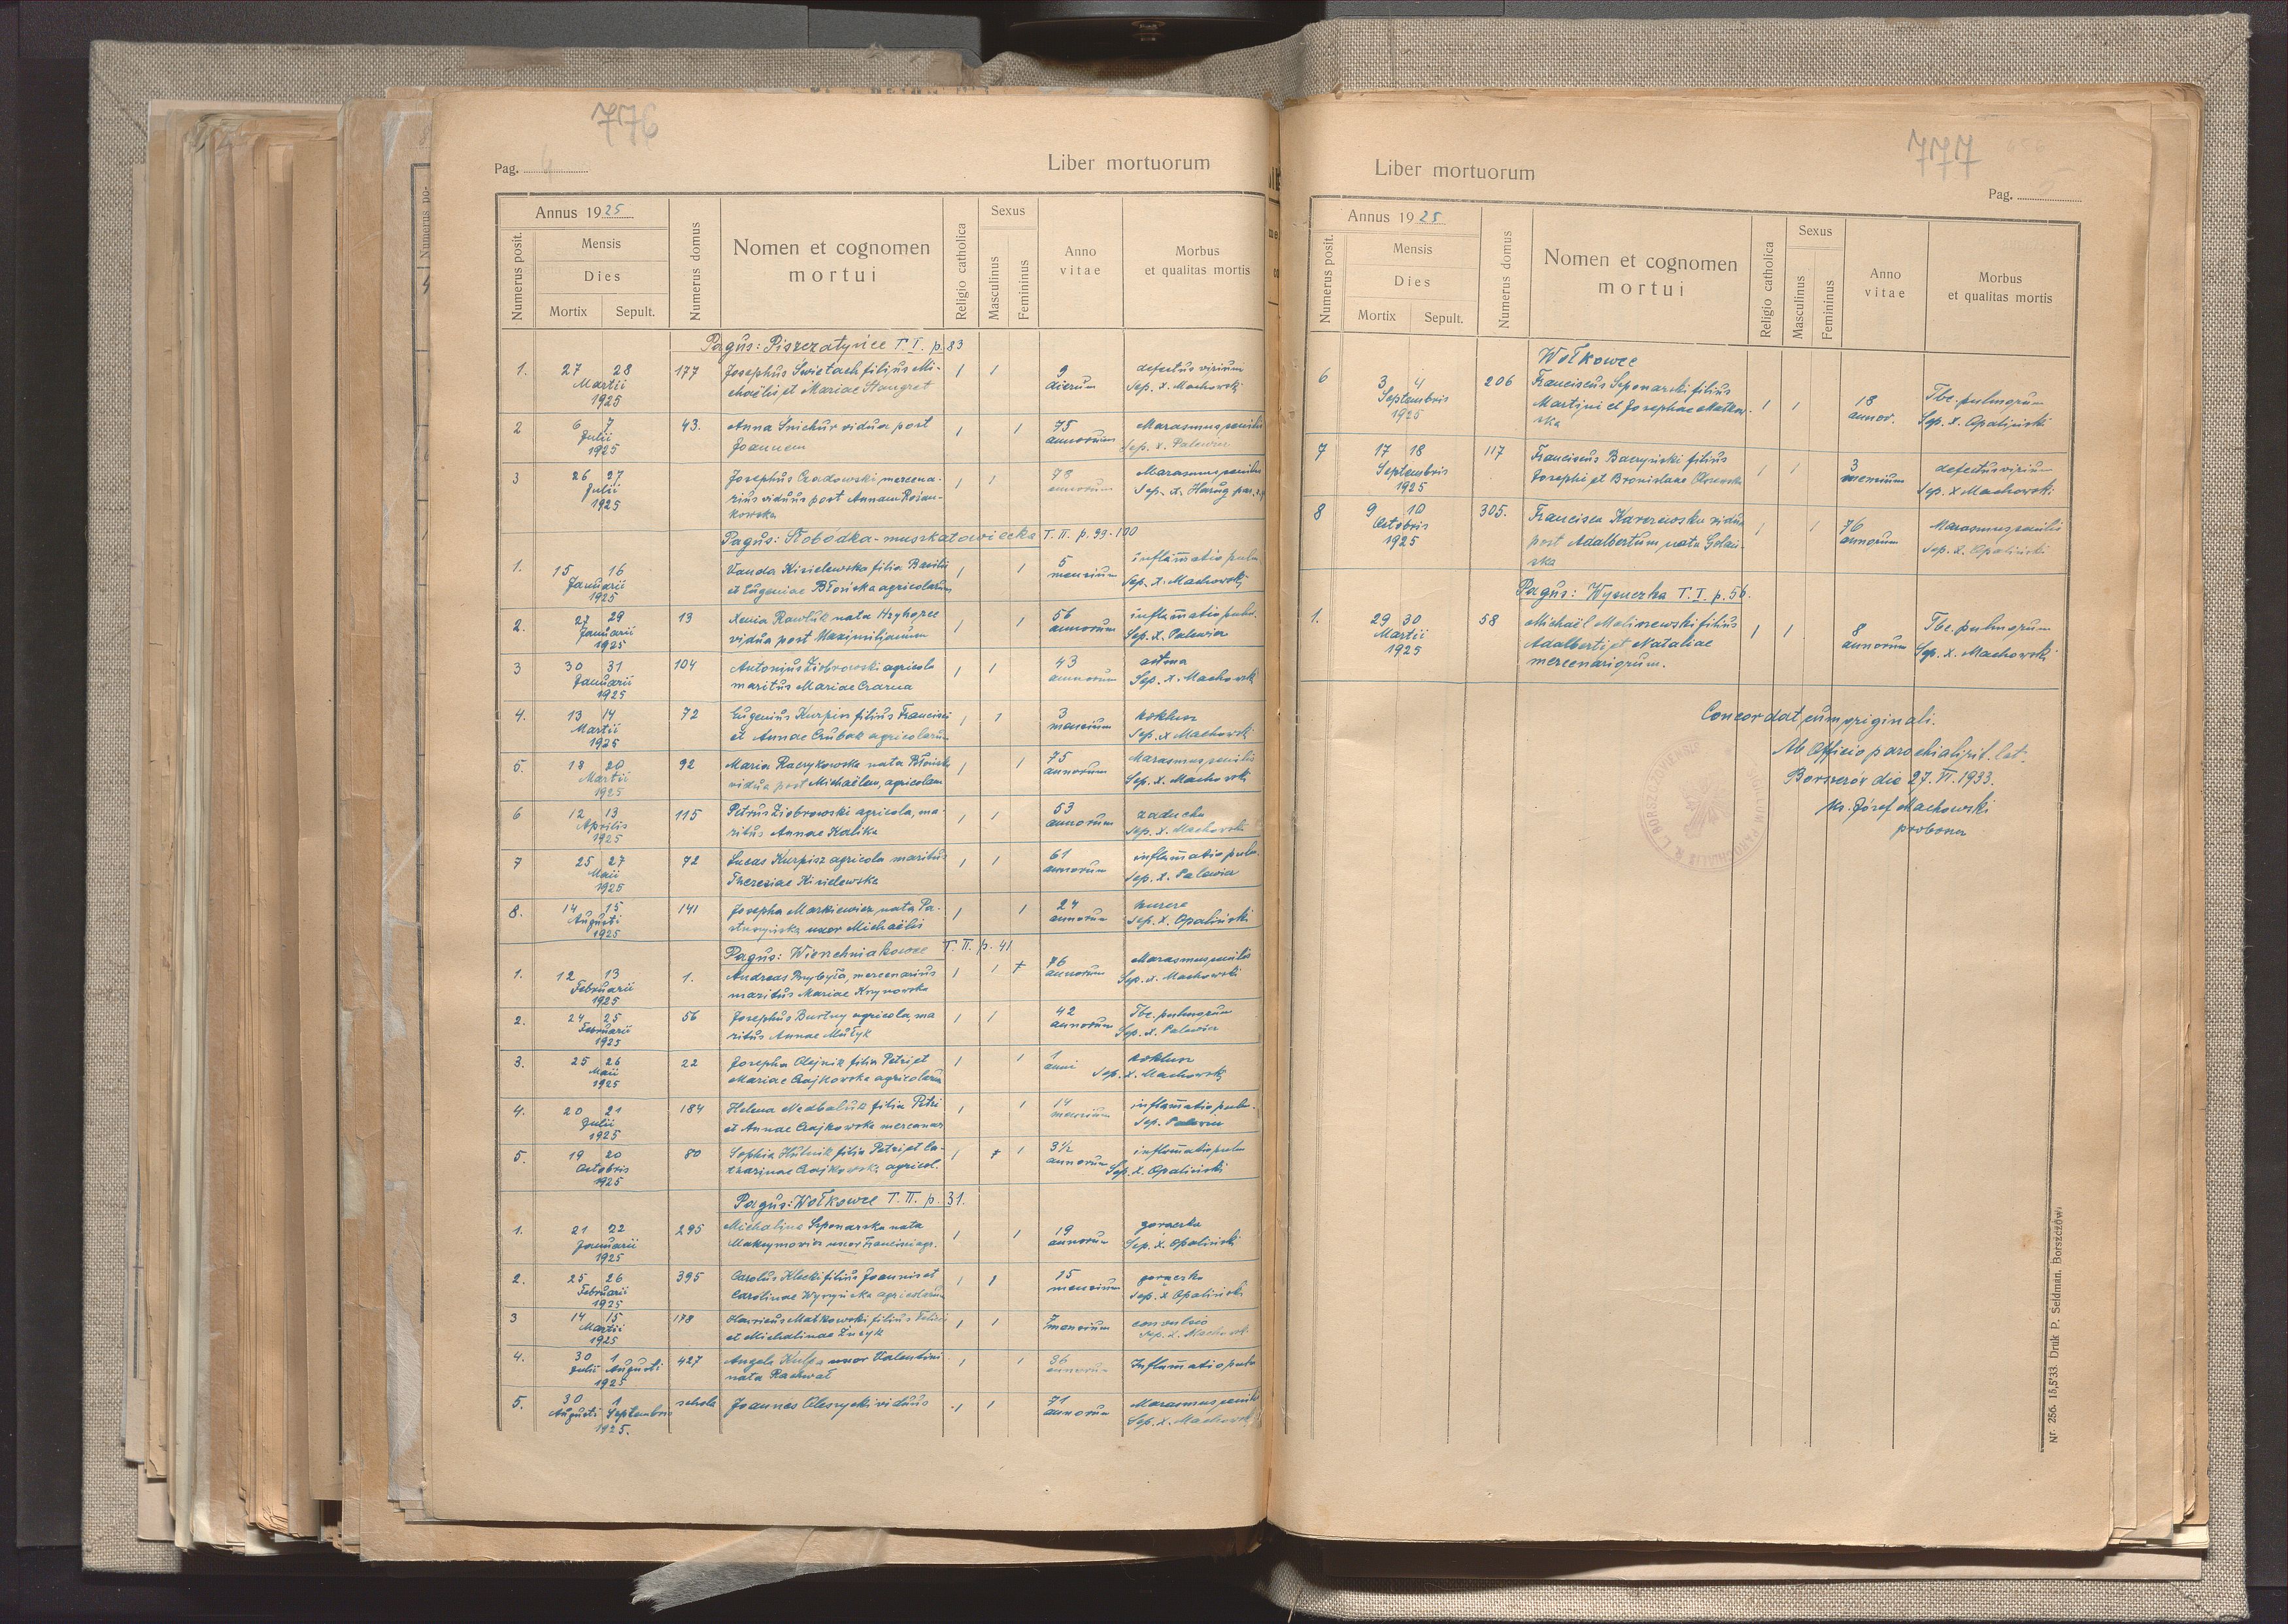 776
Pag. 4
Liber mortuorum
Annus 1925
Numerus posit.
Mensis
Dies
Mortix Sepult.
Numerus domus
Nomen et cognomen
mortui
Religio catholica
Sexus
Masculinus
Femininus
Anno
vitae
Morbus
et qualitas mortis
Pagus: Piszczatyńce T. I. p. 83
1. 27 28 177 Josephus Świetach filius Mi- 1 1 9 defectus virium
Martii chaëlis et Mariae Staugret dierum Sep. X. Machowski
1925
2 6 7 43. Anna Śniehur vidua post 1 1 75 Marasmus senilis
Julii Joannem annorum Sep. X. Palewicz
1925
3 26 27 Josephus Czadowski, mercena- 1 1 78 Marasmus senilis
Julii rius viduus post Annam Rożan- annorum Sep. X. Harug
1925 kowska
Pagus: Słobodka-muszkatowiecka T. II. p. 99-100
1. 15 16 Vanda Kisielewska filia Basilii 1 1 5 inflammatio pulm
Januarii et Eugeniae Błońska agricolarum mensium Sep. X. Machowski
1925
2. 27 29 13 Xenia Pawluk nata Hryhorce 1 1 56 inflammatio pulm.
Januarii vidua post Maximilianum annorum Sep. X. Palewicz
1925
3 30 31 104 Antonius Ziobrowski agricola 1 1 43 astma
Januarii maritus Mariae Czarna annorum Sep. X. Machowski
1925
4. 13 14 72 Eugenius Kurpisz filius Francisci 1 1 3 koklusz
Martii et Annae Czubak agricolarum mensium Sep. X Machowski
1925
5. 18 20 92 Maria Raczykowska nata Błońska 1 1 75 Marasmus senilis
Martii vidua post Michaëlem, agricolam annorum Sep. X. Machowski
1925
6 12 13 115 Petrus Ziobrowski agricola, ma- 1 1 53 zaducha
Aprilis ritus Annae Kalika annorum Sep. X. Machowski
1925
7 25 27 72 Lucas Kurpisz agricola maritus 1 1 61 inflammatio pulm.
Maii Theresiae Kisielewska annorum Sep. X. Palewicz
1925
8. 14 15 141 Josepha Markiewicz, nata Pa- 1 1 24
Augusti uxor Michaëlis annorum Sep. X. Opaliński
1925
Pagus: Wierzchniakowce T. II. p. 41
1. 12 13 1. Andreas Przybyła, mercenarius 1 1 76 Marasmus senilis
Februarii maritus Mariae Krzynowska annorum Sep. X. Machowski
1925
2. 24 25 56 Josephus Burtny agricola, ma 1 1 42 Tbc. pulmorum
Februarii ritus Annae Mułyk annorum Sep. X. Palewicz
1925
3. 25 26 22 Josepha Olejnik filia Petri et 1 1 1 koklusz
Maii Mariae Czajkowska agricolarum anni Sep. X. Machowski
1925
4. 20 21 184 Helena Nedbaluk filia Petri 1 1 14 inflammatio pulm.
Julii et Annae Czajkowska mercenar mensium Sep. Palewicz
1925
5. 19 20 80 Sophia Hutnik filia Petri et Ca- 1 1 3 1/2 inflammatio pulm
Octobris tharinae Czajkowska agricol. annorum Sep. X. Opaliński
1925
Pagus: Wołkowce T. II. p. 31.
1. 21 22 295 Michalina Szponarska nata 1 1 19 gorączka
Januarii Maksymowicz uxor Francisci agr. annorum Sep. X. Opaliński
1925
2. 25 26 395 Carolus Klecki filius Joannis et 1 1 15 gorączka
Februarii Carolinae agricolarum mensium Sep. X Opaliński
1925
3 14 15 178 Henricus Matkowski filius 1 1 7 mensium convulsio
Martii et Michalinae Zuzyk Sep. X. Machowski
1925
4. 30 1 427 Angela Kulpa uxor Valentini 1 1 36 Inflammatio pulm
Julii Augusti nata Rachwał annorum
1925
5. 30 1 schola Joannes Olesnycki viduus 1 1 71 Marasmus senilis
Augusti Septembris annorum Sep. X. Machowski
1925.
777
Liber mortuorum
Pag. 5
Annus 1925
Numerus posit.
Mensis
Dies
Mortix Sepult.
Numerus domus
Nomen et cognomen
mortui
Religio catholica
Sexus
Masculinus
Femininus
Anno
vitae
Morbus
et qualitas mortis
Wołkowce
6 3 4 206 Franciscus Szponarski filius 1 1 18 Tbc. pulmorum
Septembris Martini et Josephae Matkow- annor. Sep. X. Opaliński
1925 ska
7 17 18 117 Franciscus Baczyński filius 1 1 3 defectus virium
Septembris Josephi et Bronislaae mensium Sep. X Machowski
1925
8 9 10 305. Francisca Karczewska vidua 1 1 76 Marasmus senilis
Octobris post Adalbertum, nata Golań- annorum Sep. X. Opaliński
1925 ska
Pagus: Wysuczka T. I. p. 56.
1. 29 30 58 Michaël Maliszewski filius 1 1 8 Tbc. pulmorum
Martii Adalberti et Nataliae annorum Sep. X. Machowski
1925 mercenariorum.
Concordat cum originali.
Ab Officio parochiali rit. lat.
Borszczów die 27. VI. 1933.
ks. Józef Machowski
proboszcz
Nr. 256. 15,5'33. Druk P. Seldmán, Borszczów.